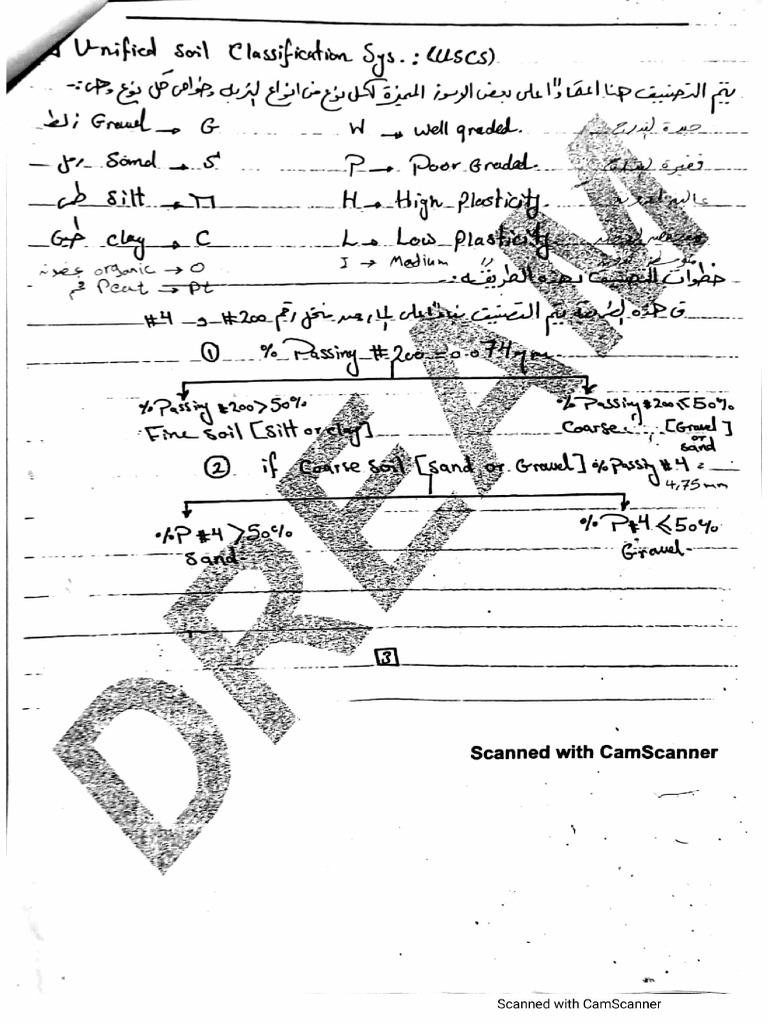 Unified Soil Classification Sys.: (USCS)
يتم التصنيف هنا اعتماداً على بعض الرموز المميزة لكل نوع من أنواع التربة وخواص كل نوع وهى:-
زلط Gravel → G W → Well graded. جيدة التدرج
رمل Sand → S P → Poor Graded. فقيرة التدرج
طمى Silt → M H → High Plasticity. عالية اللدونة
clay → C L → Low Plasticity
عضوية organic → O I → Medium // متوسطة
فحم Peat → Pt خطوات التصنيف بهذه الطريقة:-
فى هذه الطريقة يتم التصنيف بناءاً على المار من منخل رقم #200 و #4
① % Passing #200 = 0.074mm
%Passing #200 > 50% % Passing #200 ≤ 50%
Fine Soil [Silt or clay] Coarse [Gravel or Sand]
② if Coarse Soil [Sand or Gravel] % Passing #4 =
4,75mm
%P #4 > 50% % P#4 ≤ 50%
Sand Gravel
3
DREAM
Scanned with CamScanner
Scanned with CamScanner